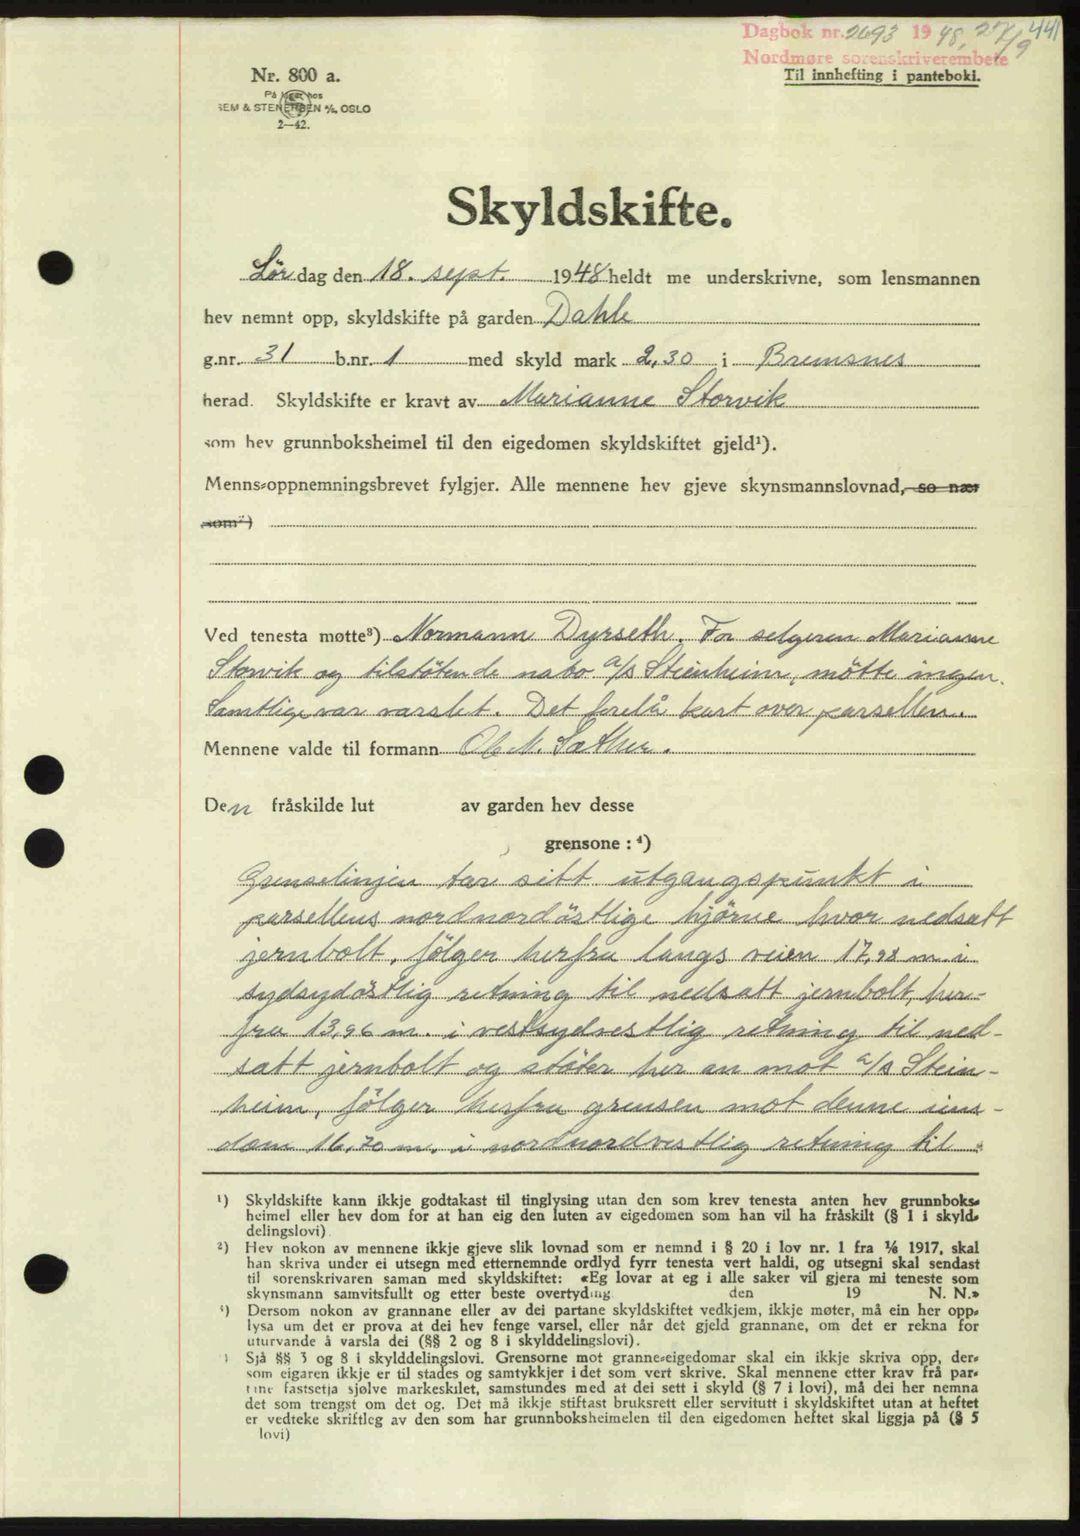 Dagbok nr. 2693 1948, 27/9 441
Nordmøre sorenskriverembete
Til innhefting i panteboki.
Nr. 800 a.
På lager hos
SEM & STENERSEN A/S, OSLO
2—42.
Skyldskifte.
Lördag den 18. sept. 1948 heldt me underskrivne, som lensmannen
hev nemnt opp, skyldskifte på garden Dahle
g.nr. 31 b.nr. 1 med skyld mark 2,30 i Bremsnes
herad. Skyldskifte er kravt av Marianne Storvik
som hev grunnboksheimel til den eigedomen skyldskiftet gjeld¹).
Menns-oppnemningsbrevet fylgjer. Alle mennene hev gjeve skynsmannslovnad, so nær
som²)
Ved tenesta møtte³) Normann Dyrseth. For selgeren Marianne
Storvik og tilstötende nabo a/s Steinheim, mötte ingen.
Samtlige var varslet. Det forelå kart over parsellen.
Mennene valde til formann Ole N. Sæther.
Den fråskilde lut av garden hev desse
grensone : ⁴)
Grenselinjen tar sitt utgangspunkt i
parsellens nordnordöstlige hjörne hvor nedsatt
jernbolt, fölger herfra langs veien 17,98 m. i
sydsydöstlig retning til nedsatt jernbolt, her-
fra 13,96 m. i vestsydvestlig retning til ned-
satt jernbolt og stöter her an mot a/s Stein-
heim, fölger herfra grensen mot denne eien-
dom 16,70 m. i nordnordvestlig retning til
¹) Skyldskifte kann ikkje godtakast til tinglysing utan den som krev tenesta anten hev grunnboks-
heimel eller hev dom for at han eig den luten av eigedomen som han vil ha fråskilt (§ 1 i skyld-
delingslovi)
²) Hev nokon av mennene ikkje gjeve slik lovnad som er nemnd i § 20 i lov nr. 1 fra 1/6 1917, skal
han skriva under ei utsegn med etternemnde ordlyd fyrr tenesta vert haldi, og utsegni skal sendast
til sorenskrivaren saman med skyldskiftet: «Eg lovar at eg i alle saker vil gjera mi teneste som
skynsmann samvitsfullt og etter beste overtyding den 19 N. N.»
³) Dersom nokon av grannane eller av dei partane skyldskiftet vedkjem, ikkje møter, må ein her opp-
lysa um det er prova at dei hev fenge varsel, eller når det gjeld grannane, om det er rekna for
uturvande å varsla dei (§§ 2 og 8 i skylddelingslovi).
) Sjå §§ 3 og 8 i skylddelingslovi. Grensorne mot granne-eigedomar skal ein ikkje skriva opp, der-
som eigaren ikkje er til stades og samtykkjer i det som vert skrive. Skal mennene etter krav frå par-
tane fastsetja sjølve markeskilet, samstundes med at dei sett i skyld (§ 7 i lovi), må dei her nemna
det som trengst om det og. Det må ikkje stiftast bruksrett eller servitutt i skyldskiftet utan at heftet
er vedteke skriftleg av den som har grunnboksheimelen til den eigedomen heftet skal liggja på (§ 5
lovi)